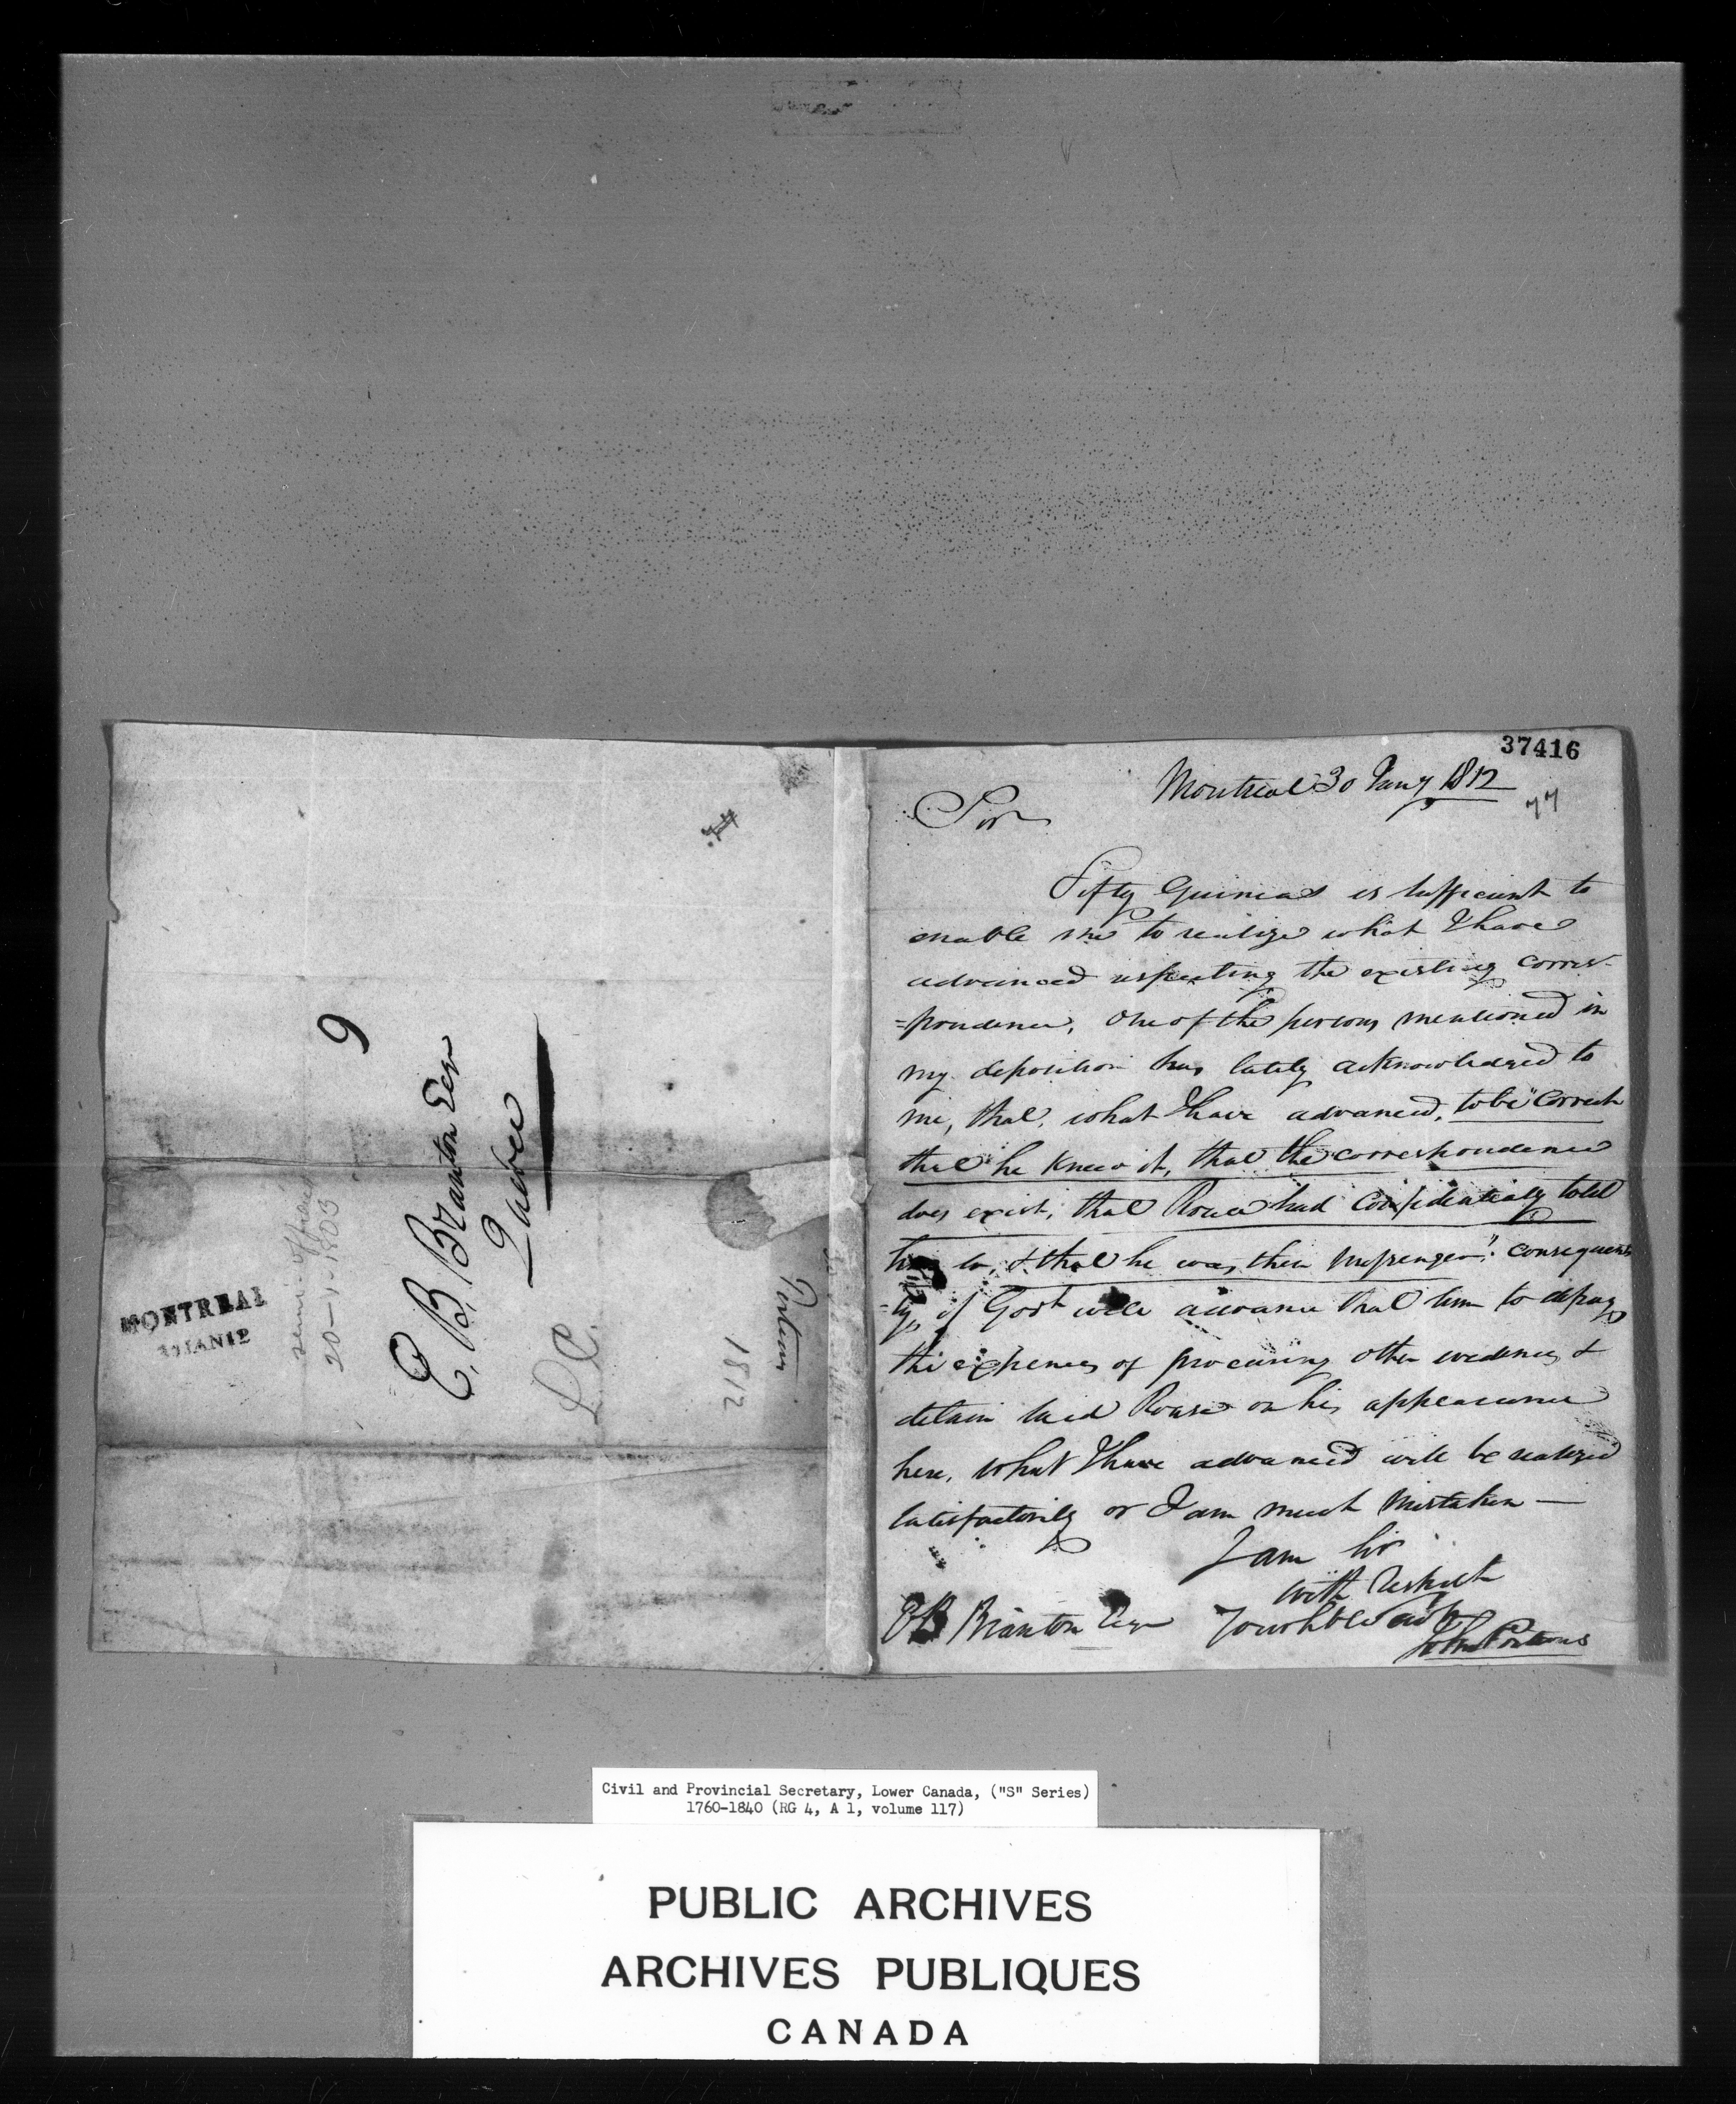 37416
Montreal 30 Jany 1812
77
Sir
Fifty Guineas is sufficient to
enable me to realize what I have
advanced respecting the existing corres-
=pondence, One of the persons mentioned in
my deposition has lately acknowledged to
me, that, what I have advanced, to be "Correct
that he knew it, that the correspondence
does exist, that Rouse had Confidentialy told
him so, & that he was their Messenger". consequent
=ly, if Govt will advance that Sum to defray
the expences of procuring other evidences, &
detain said Rouse on his appearance
here, what I have advanced will be realized
satisfactorily or I am much Mistaken —
I am Sir
with Respect
Your hble
EB Branton Esqr
John Porteous
74
9
E. B. Branton Esqr
Quebec
L.C.
1812
Porteous
semi-official
20-1-1803
MONTREAL
JAN12
Civil and Provincial Secretary, Lower Canada, ("S" Series)
1760-1840 (RG 4, A 1, volume 117)
PUBLIC ARCHIVES
ARCHIVES PUBLIQUES
CANADA